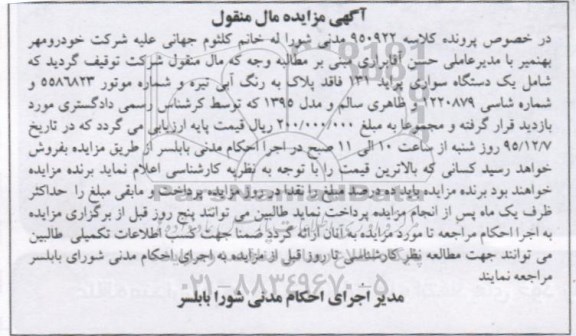 آگهی مزایده مال منقول
در خصوص پرونده کلاسه ۹۵۰۹۲۲ مدنی شورا له خانم کلثوم جهانی علیه شرکت خودرومهر
بهنمیر با مدیرعاملی حسن آقابراری مبنی بر مطالبه وجه که مال منقول شرکت توقیف گردید که
شامل یک دستگاه سواری پراید ۱۳۱ فاقد پلاک به رنگ آبی تیره و شماره موتور ۵۵۸۶۸۲۳ و
شماره شاسی ۱۲۲۰۸۷۹ و ظاهری سالم و مدل ۱۳۹۵ که توسط کرشناس رسمی دادگستری مورد
بازدید قرار گرفته و مجموعا به مبلغ ۲۰۰/۰۰۰/۰۰۰ ریال قیمت پایه ارزیابی می گردد که در تاریخ
۹۵/۱۲/۷ روز شنبه از ساعت ۱۰ الی ۱۱ صبح در اجرا احکام مدنی بابلسر از طریق مزایده بفروش
خواهد رسید کسانی که بالاترین قیمت را با توجه به نظریه کارشناسی اعلام نماید برنده مزایده
خواهند بود برنده مزایده باید ده درصد مبلغ را نقدا در روز مزایده پرداخت و مابقی مبلغ را حداکثر
ظرف یک ماه پس از انجام مزایده پرداخت نماید طالبین می توانند پنج روز قبل از برگزاری مزایده
به اجرا احکام مراجعه تا مورد مزایده به آنان ارائه گردد ضمنا جهت کسب اطلاعات تکمیلی طالبین
می توانند جهت مطالعه نظر کارشناسی تا روز قبل از مزایده به اجرای احکام مدنی شورای بابلسر
مراجعه نمایند
۰۲۱-۸۸۳۴۹۶۷۰-۵
مدیر اجرای احکام مدنی شورا بابلسر